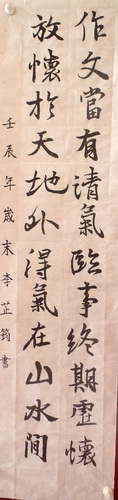 作文當有清氣臨事終期虛懷
放懷於天地外得氣在山水間
壬辰年歲末李芷筠書